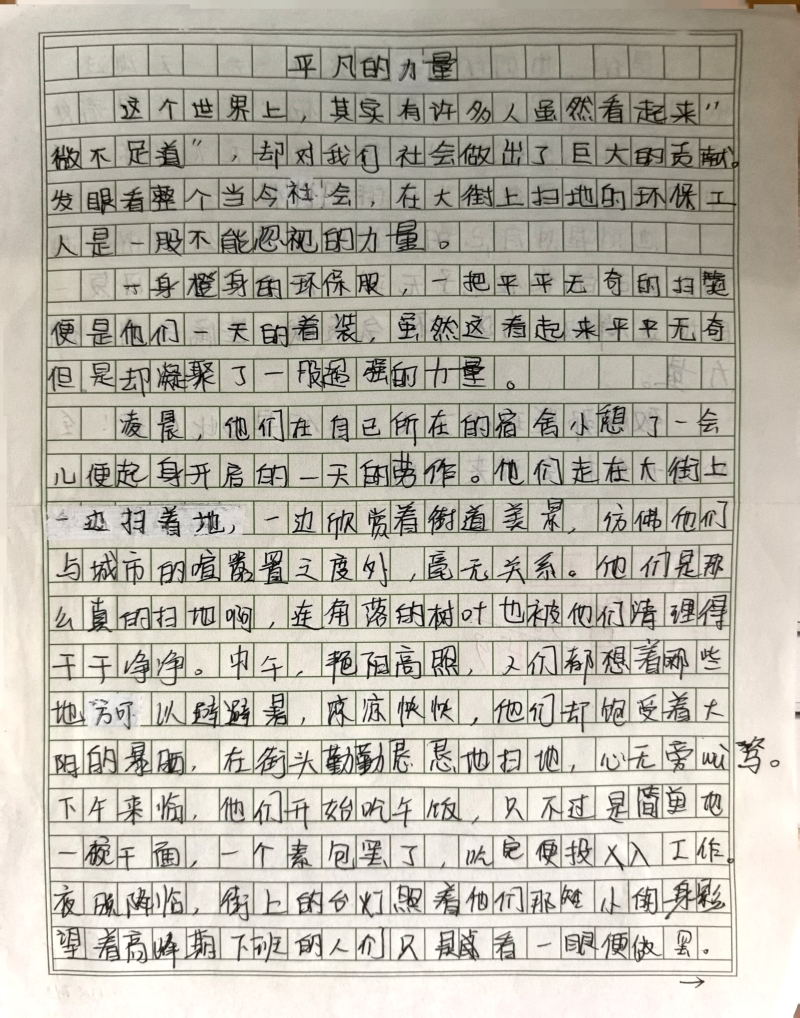 平凡的力量
这个世界上，其实有许多人虽然看起来"
微不足道"，却对我们社会做出了巨大的贡献。
发眼看整个当今社会，在大街上扫地的环保工
人是一股不能忽视的力量。
一身橙身的环保服，一把平平无奇的扫
便是他们一天的着装，虽然这看起来平平无奇
但是却凝聚了一股超强的力量。
凌晨，他们在自己所在的宿舍小憩了一会
儿便起身开启的一天的劳作。他们走在大街上
一边扫着地，一边欣赏着街道美景，仿佛他们
与城市的喧嚣置之度外，毫无关系。他们是那
么真的扫地啊，连角落的树叶也被他们清理得
干干净净。中午，艳阳高照，人们都想着哪些
地方可以避避暑，凉凉快快，他们却饱受着大
阳的暴晒，在街头勤勤恳恳地扫地，心无旁骛。
下午来临，他们开始吃午饭，只不过是简单地
一碗干面，一个素包罢了，吃完便投入工作。
夜晚降临，街上的台灯照着他们那 小的身影
望着高峰期下班的人们只是 看一眼便做罢。
→